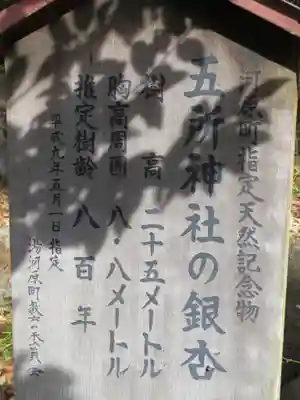 河原町指定天然記念物
五所神社の銀杏
樹高 二十五メートル
胸高周囲 八・八メートル
推定樹齢 八百年
平成九年五月一日指定
湯河原町教育委員会